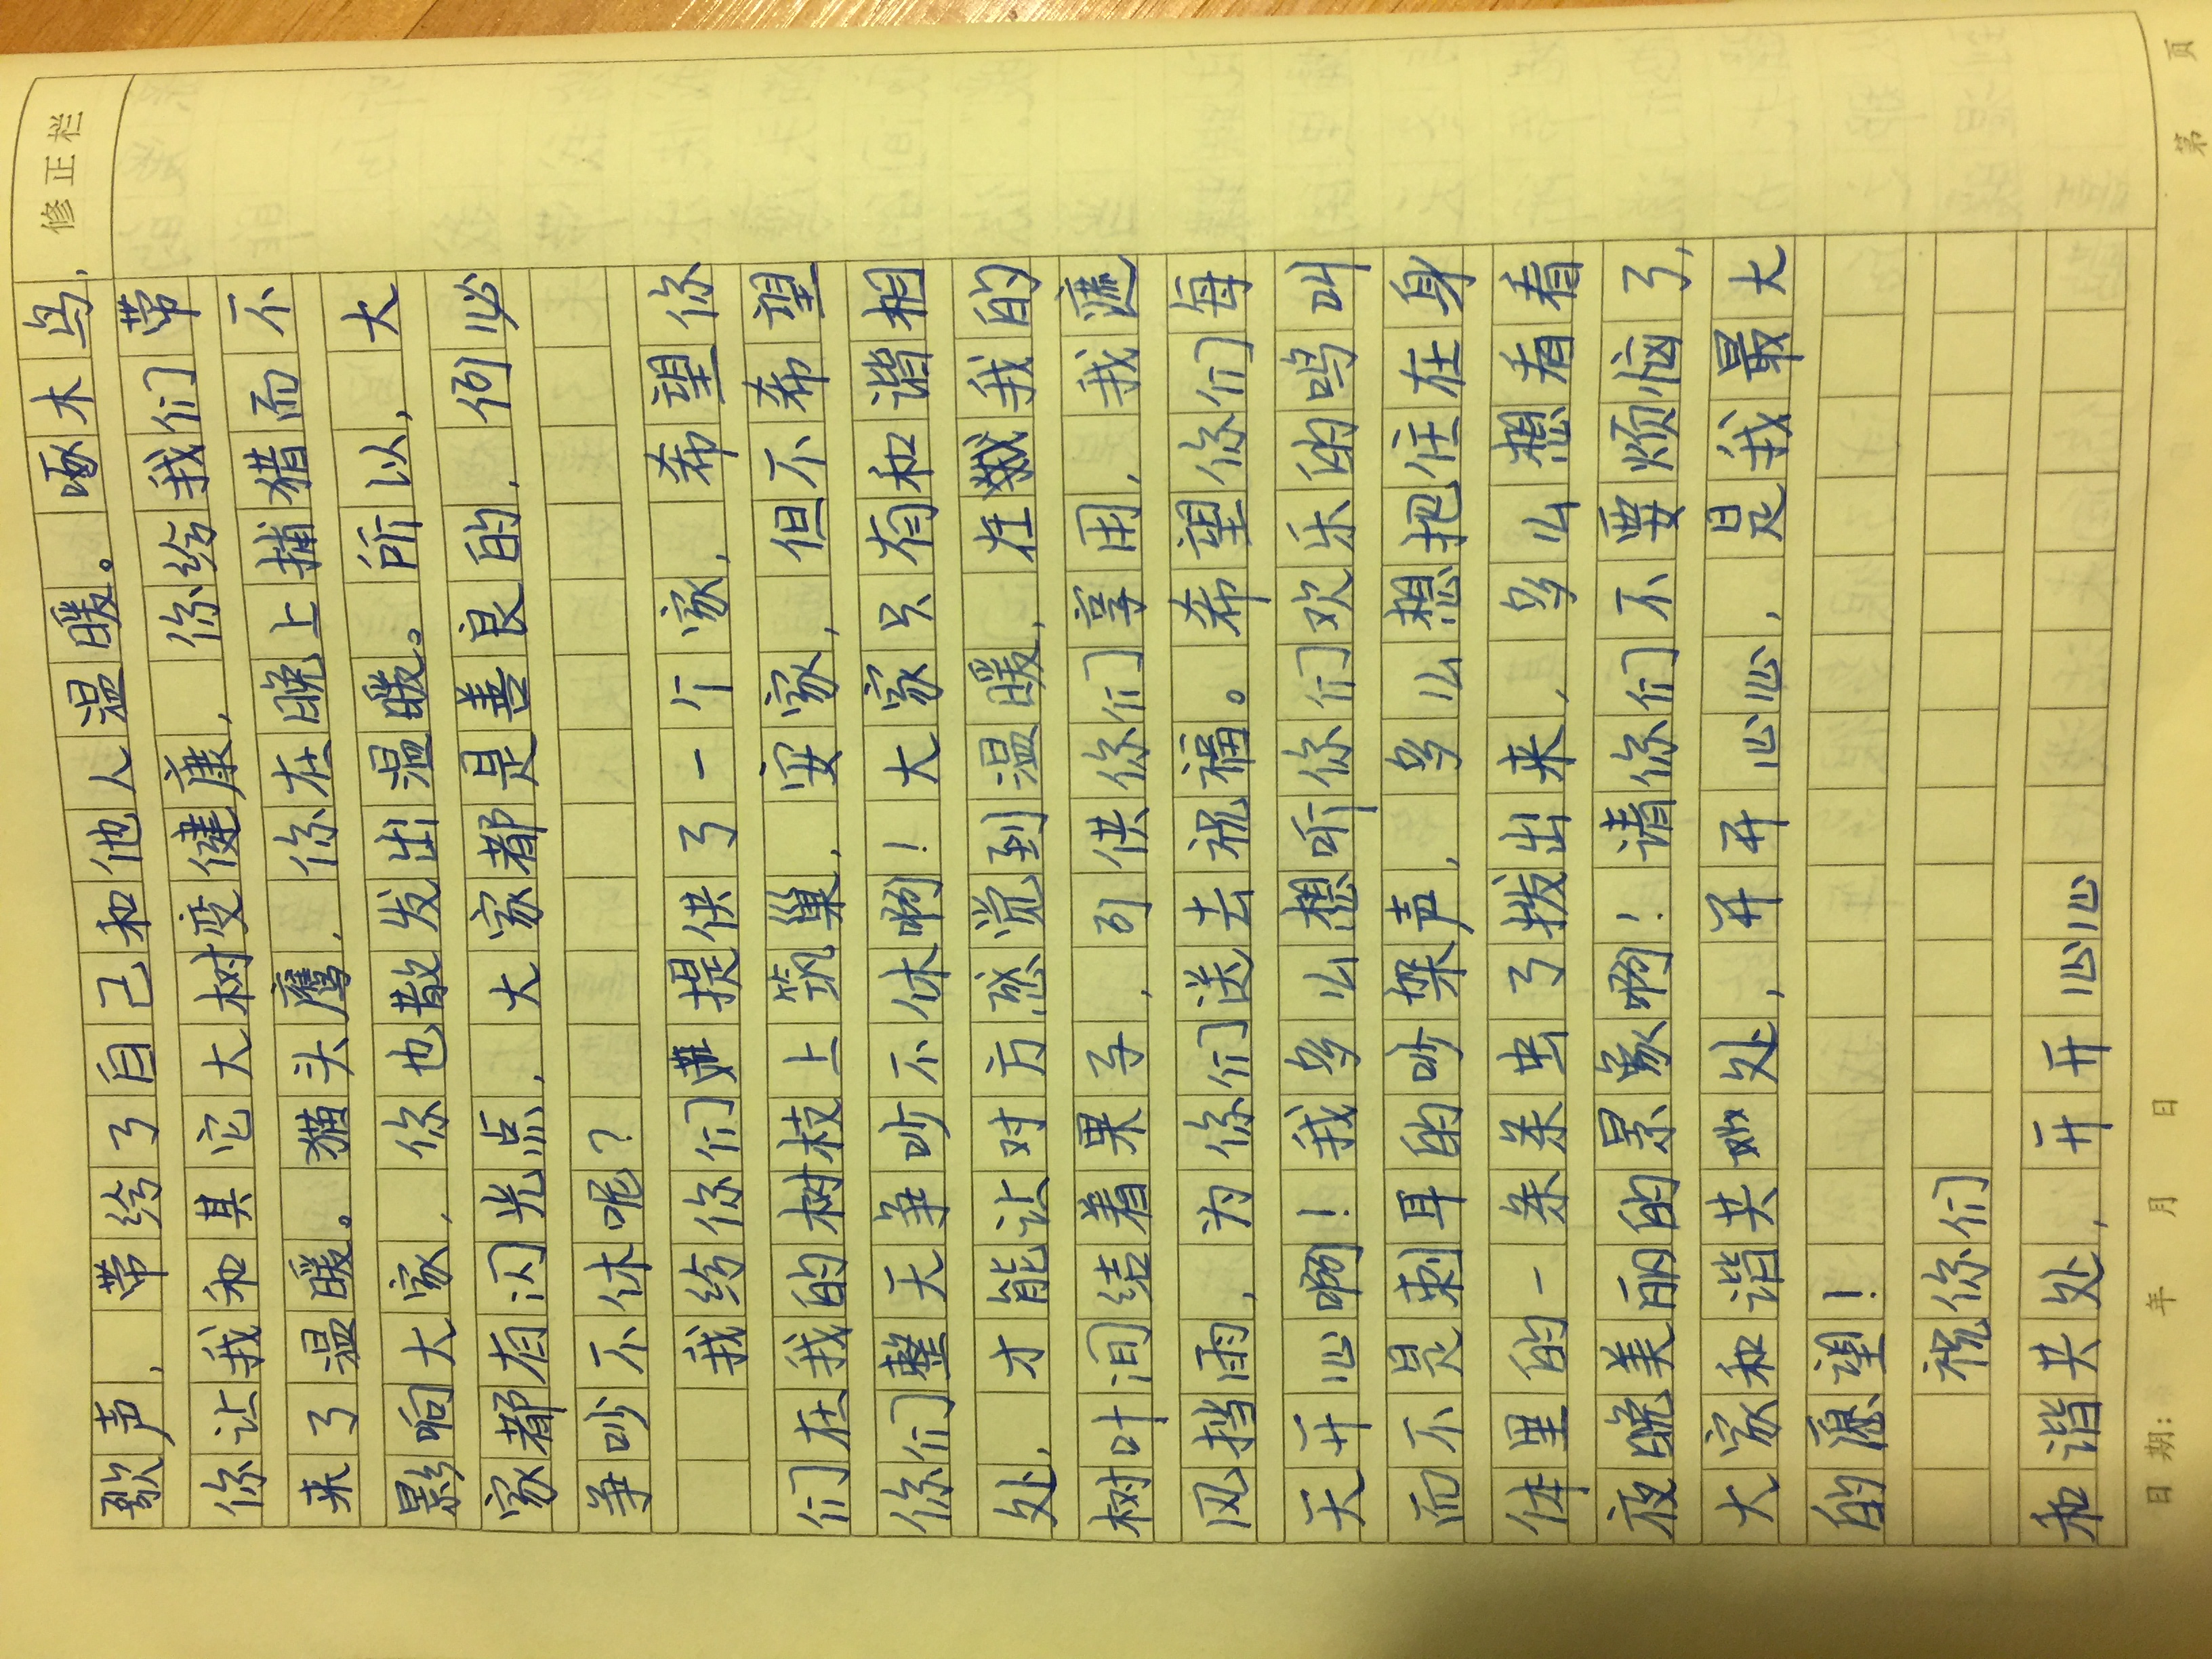 修正栏
歌声,带给了自己和他人温暖。啄木鸟,
你让我和其它大树变健康,你给我们带
来了温暖。猫头鹰,你在晚上捕猎而不
影响大家,你也散发出温暖。所以,大
家都有闪光点,大家都是善良的,何必
争吵不休呢?
我给你们提供了一个家,希望你
们在我的树枝上筑巢,安家,但不希望
你们整天争吵不休啊!大家只有和谐相
处,才能让对方感觉到温暖,在我的
树叶间结着果子,可供你们享用,我遮
风挡雨,为你们送去祝福。希望你们每
天开心啊!我多么想听你们欢乐的鸣叫
而不是刺耳的吵架声,多么想把住在身
体里的一条条虫子拨出来,多么想看看
夜晚美丽的景象啊!请你们不要烦恼了,
大家和谐共处,开开心心,是我最大
的愿望!
祝你们
和谐共处,开开心心
日期: 年 月 日 第 页